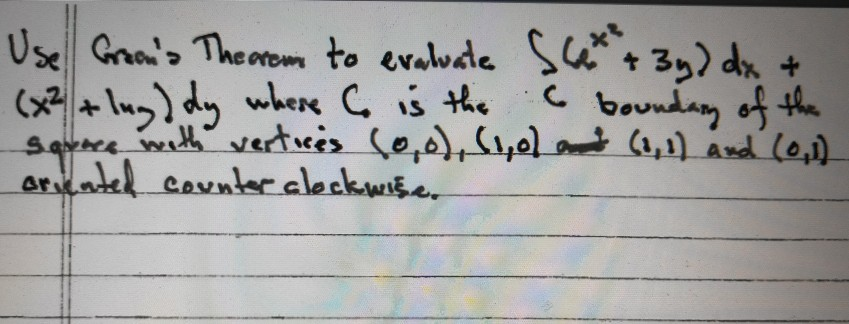 Use Green's Theorem to evaluate ∫(e^x² + 3y) dx +
(x² + lny) dy where C is the C boundary of the
square with vertices (0,0), (1,0) and (1,1) and (0,1)
oriented counter clockwise.